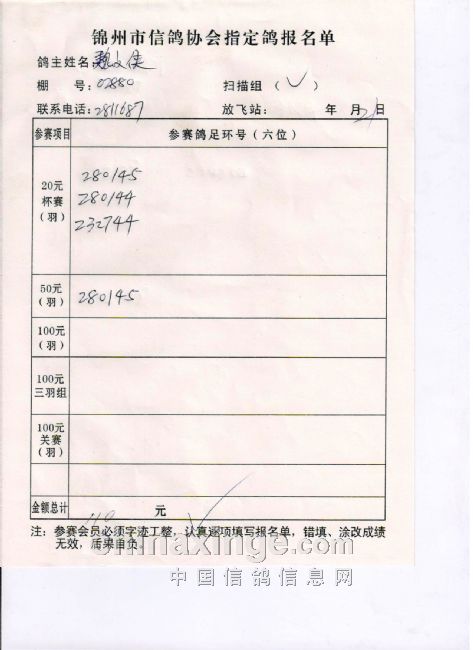 锦州市信鸽协会指定鸽报名单
鸽主姓名 魏文侠
棚 号: 02880 扫描组 ( √ )
联系电话: 2811687 放飞站: 年 月 21 日
参赛项目 参赛鸽足环号 (六位)
20元 杯赛 (羽)
280145
280144
232744
50元 (羽) 280145
100元 (羽)
100元 三羽组
100元 关赛 (羽)
金额总计 110 元
注: 参赛会员必须字迹工整, 认真逐项填写报名单, 错填、涂改成绩
无效, 后果自负。
chinaxinge.com
中国信鸽信息网